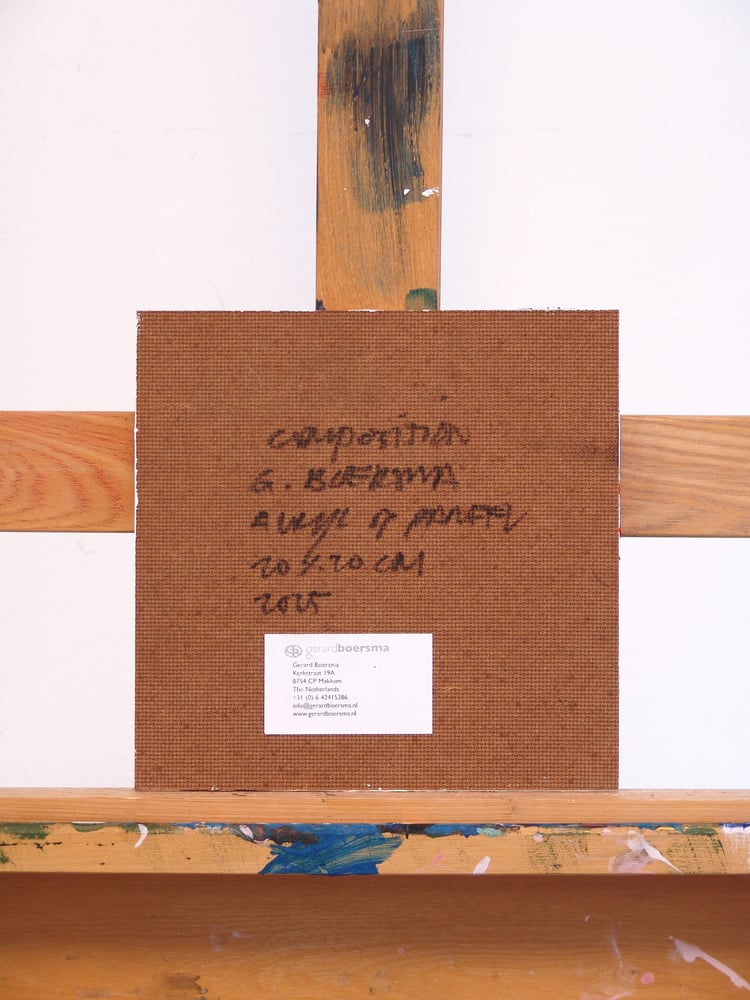 composition
G. BOERSMA
20 x 20 cm
2025
gerardboersma
Gerard Boersma
Kerkstraat 19A
8754 CP Makkum
The Netherlands
+31 (0) 6 42415386
info@gerardboersma.nl
www.gerardboersma.nl